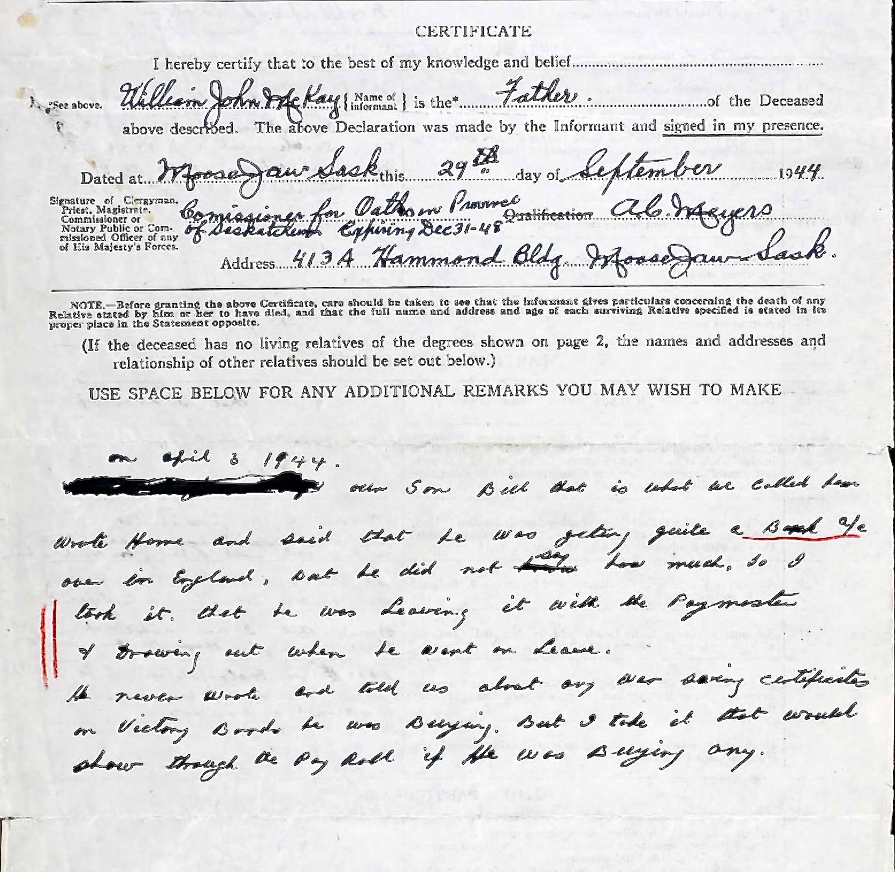 CERTIFICATE
I hereby certify that to the best of my knowledge and belief
*See above. William John McKay {Name of Informant} is the* Father. of the Deceased
above described. The above Declaration was made by the Informant and signed in my presence.
Dated at Moose Jaw Sask this 29th day of September 1944
Signature of Clergyman, Priest, Magistrate, Commissioner or Notary Public or Commissioned Officer of any of His Majesty's Forces.
Comissioner for Oaths in Province
of Saskatchewan Expiring Dec 31-48
Qualification A.C. Meyers
Address 413A Hammond Bldg. Moose Jaw Sask.
NOTE.—Before granting the above Certificate, care should be taken to see that the Informant gives particulars concerning the death of any
Relative stated by him or her to have died, and that the full name and address and age of each surviving Relative specified is stated in its
proper place in the Statement opposite.
(If the deceased has no living relatives of the degrees shown on page 2, the names and addresses and
relationship of other relatives should be set out below.)
USE SPACE BELOW FOR ANY ADDITIONAL REMARKS YOU MAY WISH TO MAKE
on april 3 1944.
our Son Bill that is what we called him
wrote Home and said that he was geting quite a Bank a/c
over in England, but he did not say how much, so I
took it. that he was Leaving it with the Paymaster
& Drawing out when he went on Leave.
He never wrote and told us about any war saving certificates
or Victory Bonds he was Buying. But I take it that would
show through the Pay Roll if He was Buying any.